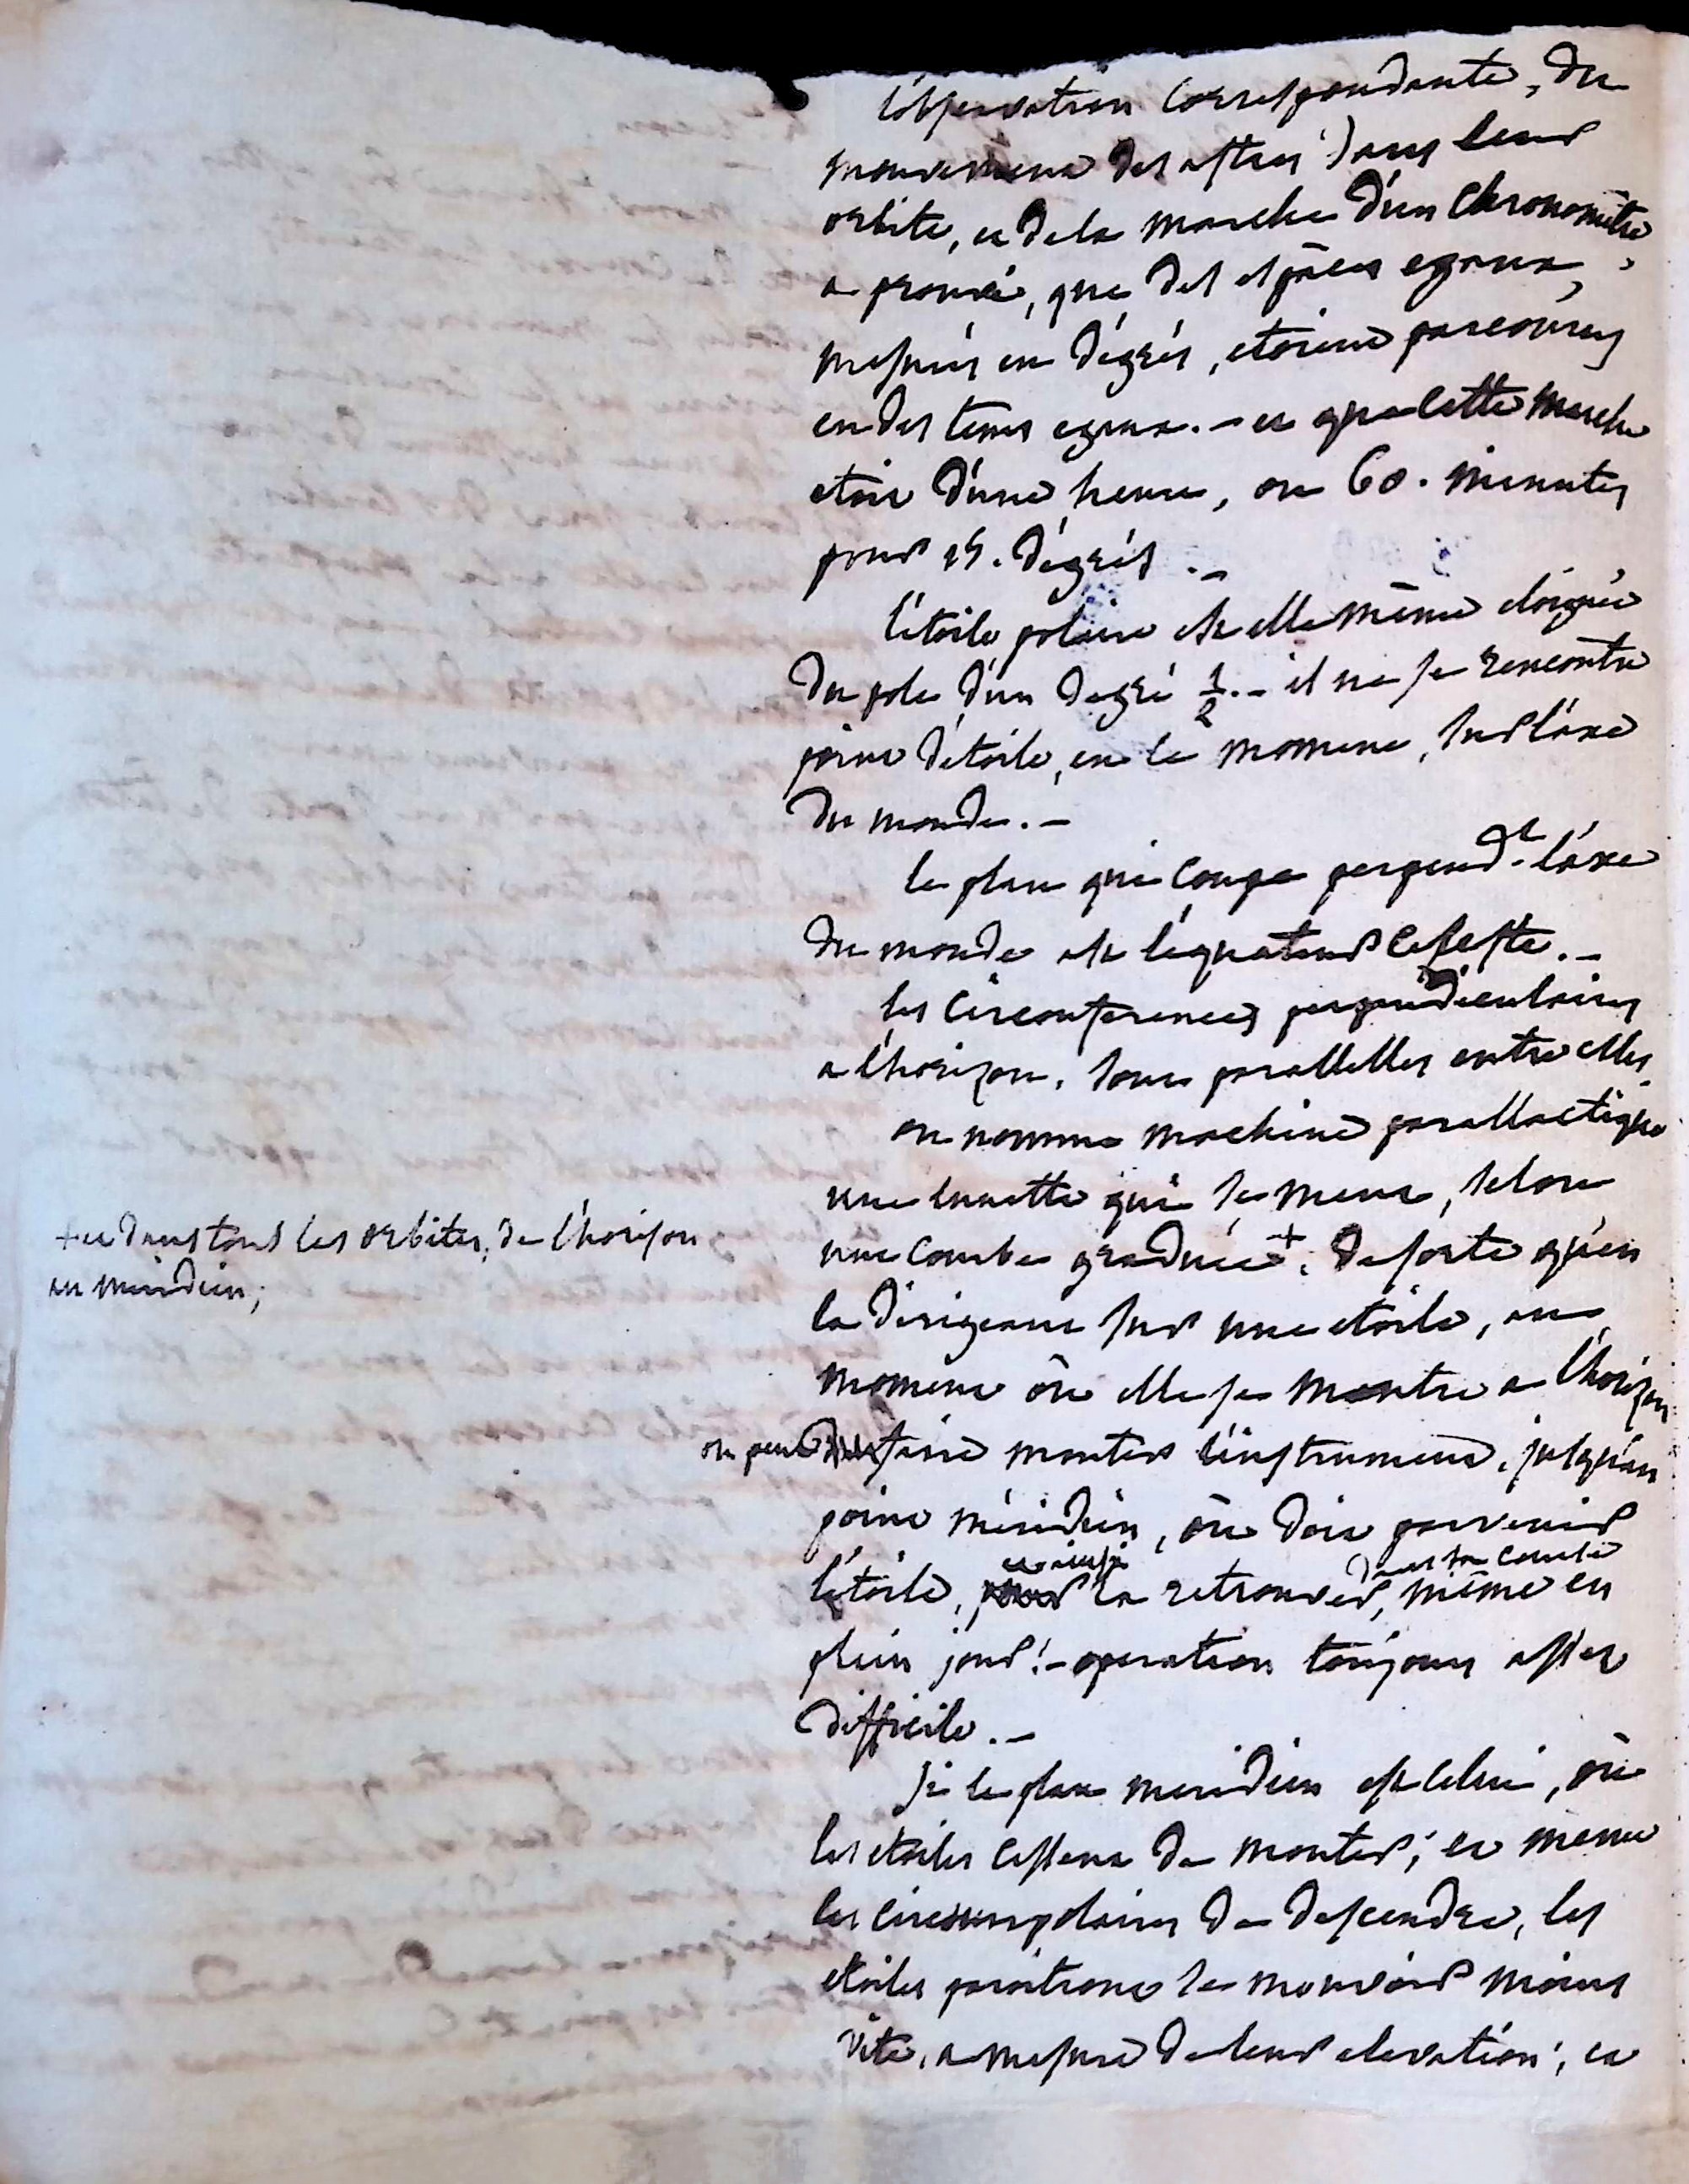 l'observation correspondante, du
mouvement des astres dans leur
orbite, et de la marche d'un chronomètre,
a prouvé, que des espâces egaux,
mesurés en dégrés, etoient parcourus
en des tems egaux. - et que cette marche
etoit d'une heure, ou 60. minutes
pour 15. dégrés . -
l'étoile polaire est elle même eloignée
du pole d'un degré 1/2 . - il ne se rencontre
point d'étoile, en ce moment, sur l'axe
du monde. -
le plan qui coupe perpend.t l'axe
du monde est l'équateur celeste. -
les circonferences perpendiculaires
a l'horizon, sont parallelles entre elles.
on nomme machine parallactique
une lunette qui se meut, selon
une courbe graduée +, de sorte qu'en
+ et dans tous les orbites, de l'horison
au meridien;
la dirigeant sur une etoile, au
moment où elle se montre a l'horizon
on peut faire monter l'instrument, jusqu'au
point méridien, où doit parvenir
et ainsi dans sa course
l'étoile, pour la retrouver, même en
plein jour! - operation toujours assez
difficile. -
si le plan meridien est celui, où
les etoiles cessent de monter; et même
les circompolaires de descendre, les
etoiles paroitront se mouvoir moins
vite, a mesure de leur elevation; et